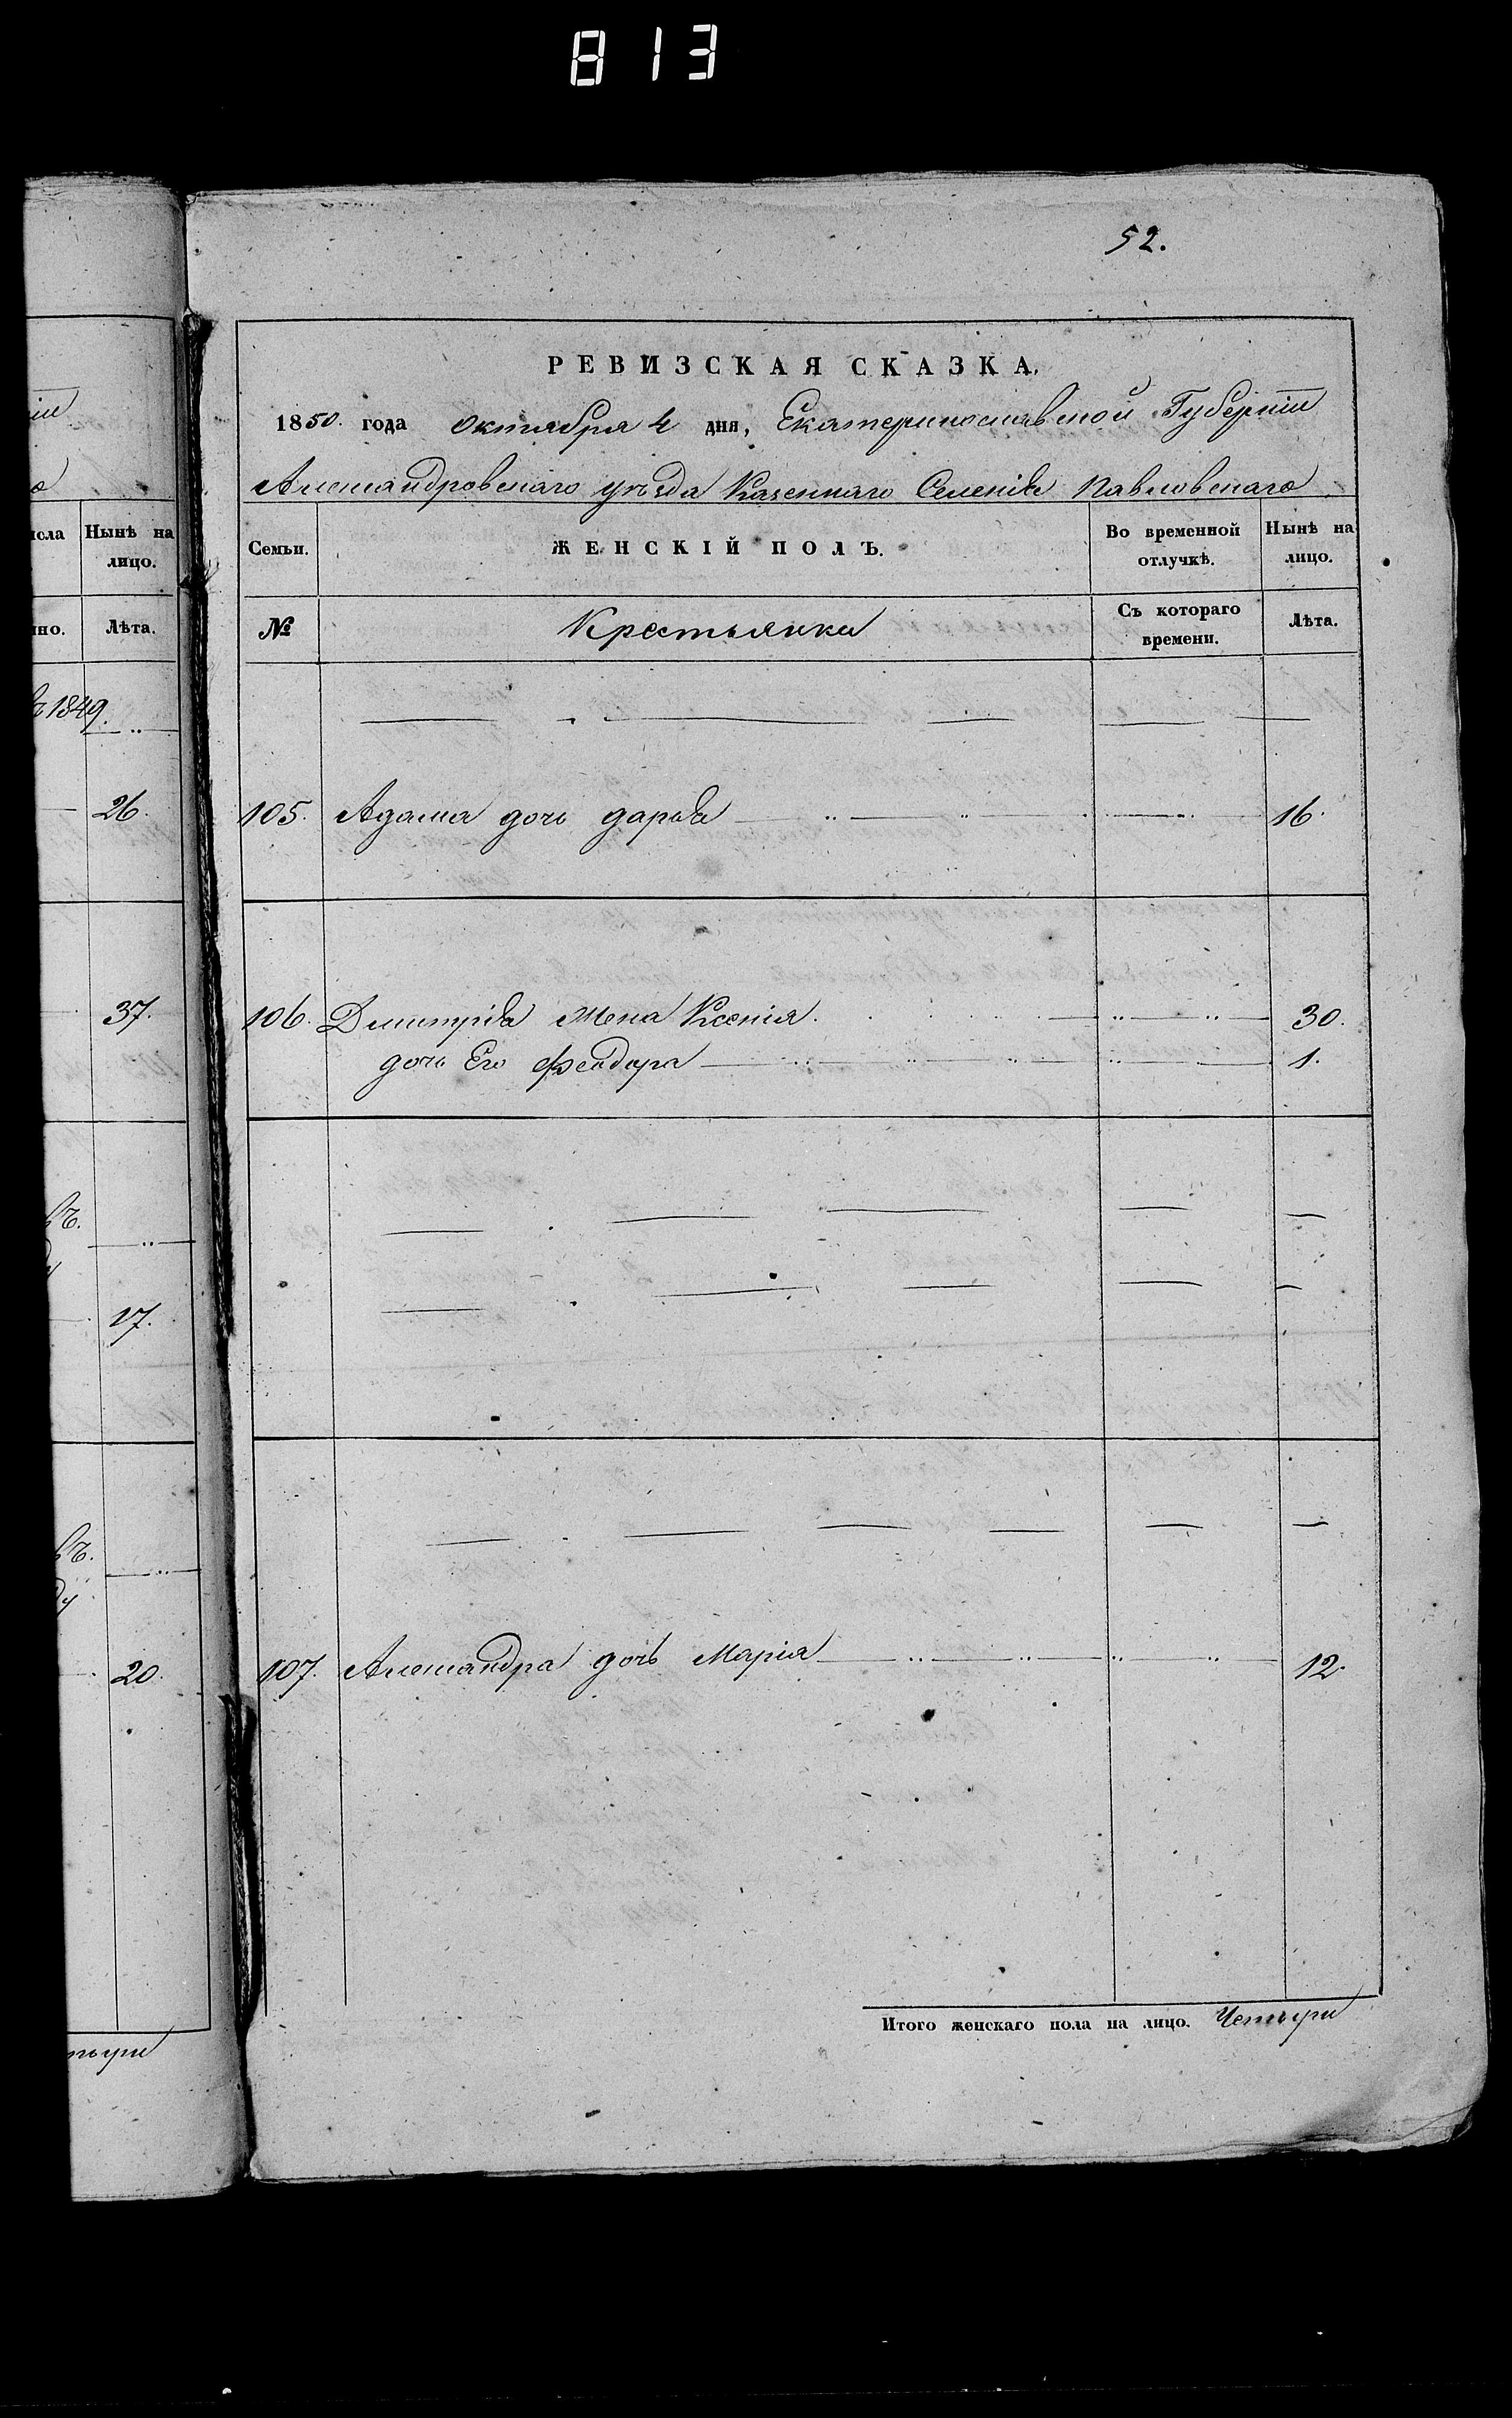 813
52.
РЕВИЗСКАЯ СКАЗКА.
1850. года октября 4 дня, Екатеринославской Губерніи
Александровскаго уѣзда Казеннаго Селенія Павловскаго
Семьи. ЖЕНСКІЙ ПОЛЪ. Во временной отлучкѣ. Нынѣ на лицо.
№ Крестьянки Съ котораго времени. Лѣта.
105. Адама дочь дарья 16.
106. Димитрія жена Ксенія 30.
дочь Его Феодора 1.
107. Александра дочь Марія 12.
Итого женскаго пола на лицо. Четыри
Нынѣ на лицо.
Лѣта.
1849.
26.
37.
17.
20.